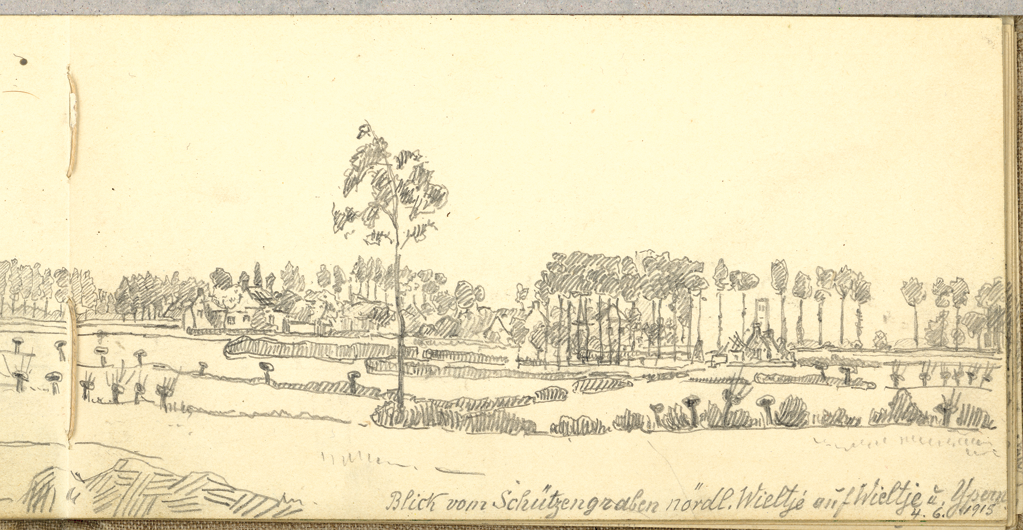 Blick vom Schützengraben nördl. Wieltje auf Wieltje u. Ypern
4. 6. 1915